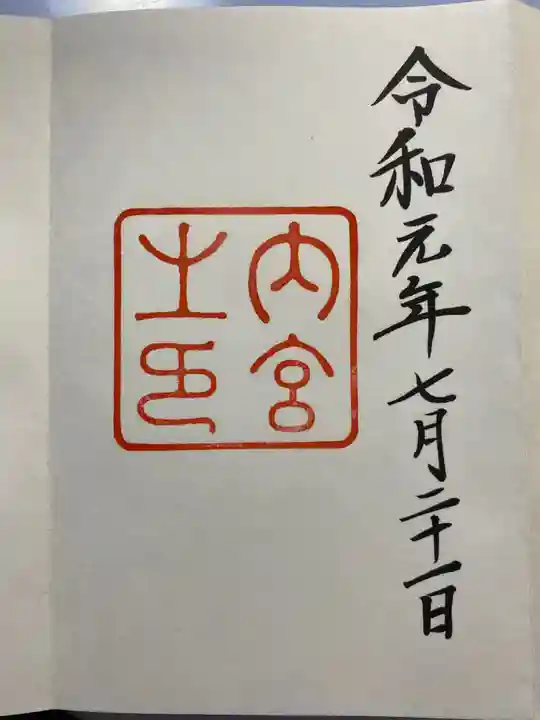 令和元年七月二十一日
内宮
之印